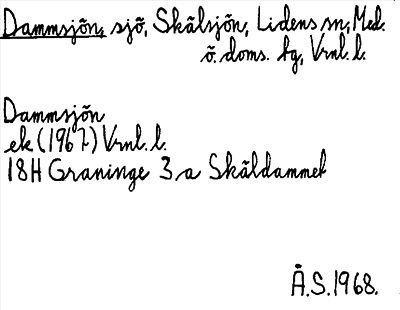 Dammsjön, sjö, Skälsjön, Lidens sn, Med.
ö. doms. hg, Vrnl. l.
Dammsjön
ek (1967) Vrnl. l.
18H Graninge 3 a Skäldammet
Å.S. 1968.